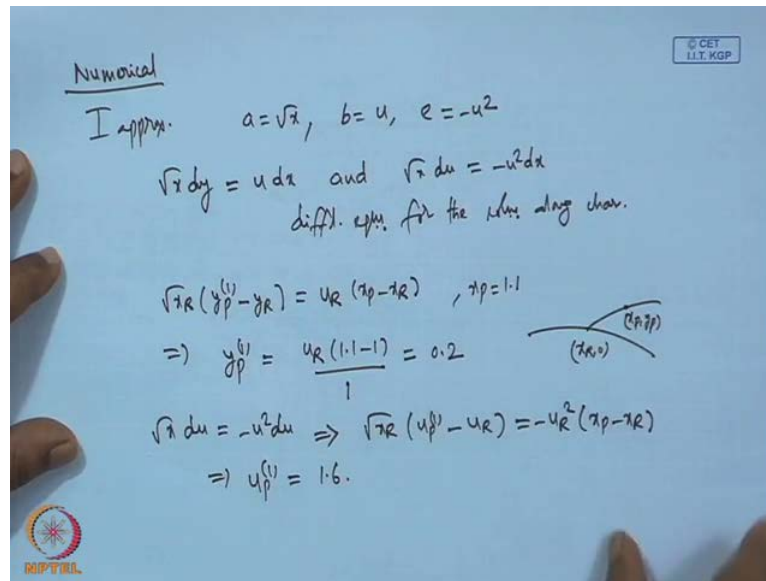 © CET
I.I.T. KGP
Numerical
I approx. a = √x, b = u, c = -u²
√x dy = u dx and √x du = -u² dx
diffl. eqn. for the soln. along char.
√x_R (y_P^(1) - y_R) = u_R (x_P - x_R) , x_P = 1.1
⇒ y_P^(1) = u_R (1.1 - 1) / 1 = 0.2
(x_P, y_P)
(x_R, 0)
√x du = -u² du ⇒ √x_R (u_P^(1) - u_R) = -u_R² (x_P - x_R)
⇒ u_P^(1) = 1.6.
NPTEL